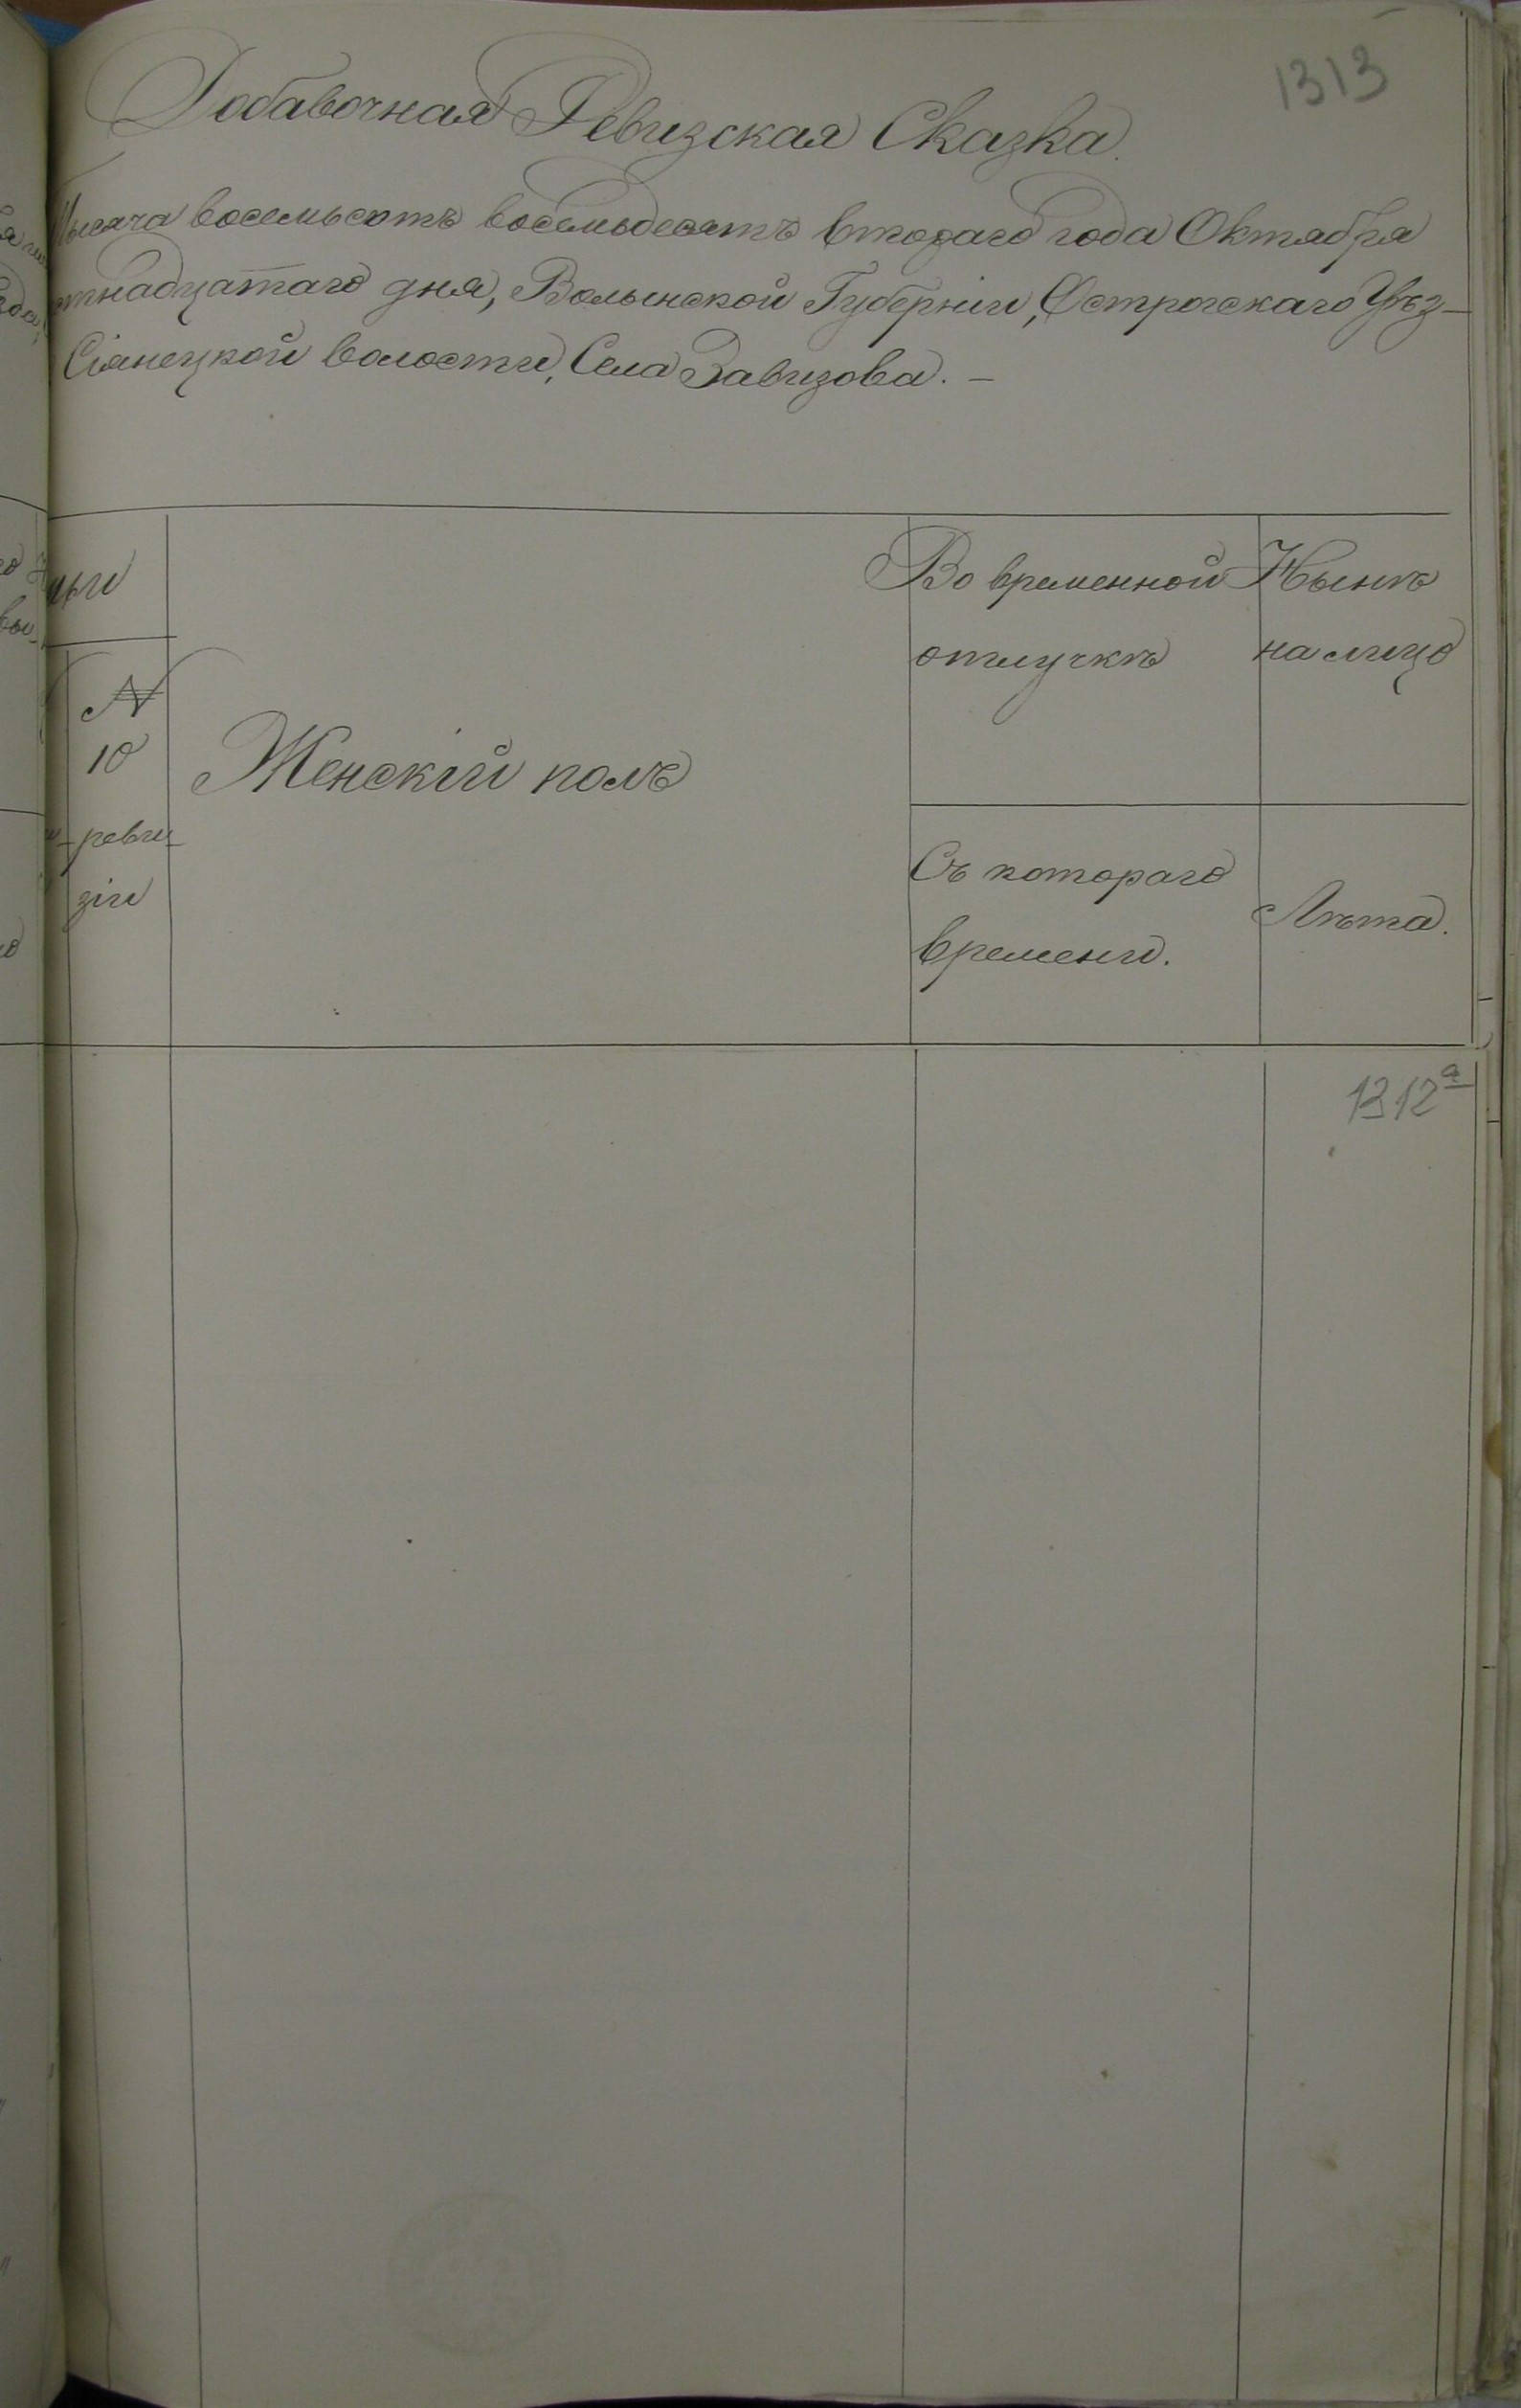 1313
Добавочная Ревизская Сказка.
Тысяча восемьсотъ восемьдесятъ втораго года Октября
тнадцатаго дня, Волынской Губерніи, Острогскаго Уѣз-
Сіянецкой волости, Села Завизова. -
Во временной
отлучкѣ
Нынѣ
на лицо
№
10
реви-
зіи
Женскій полъ
Съ котораго
времени.
Лѣта.
1312а